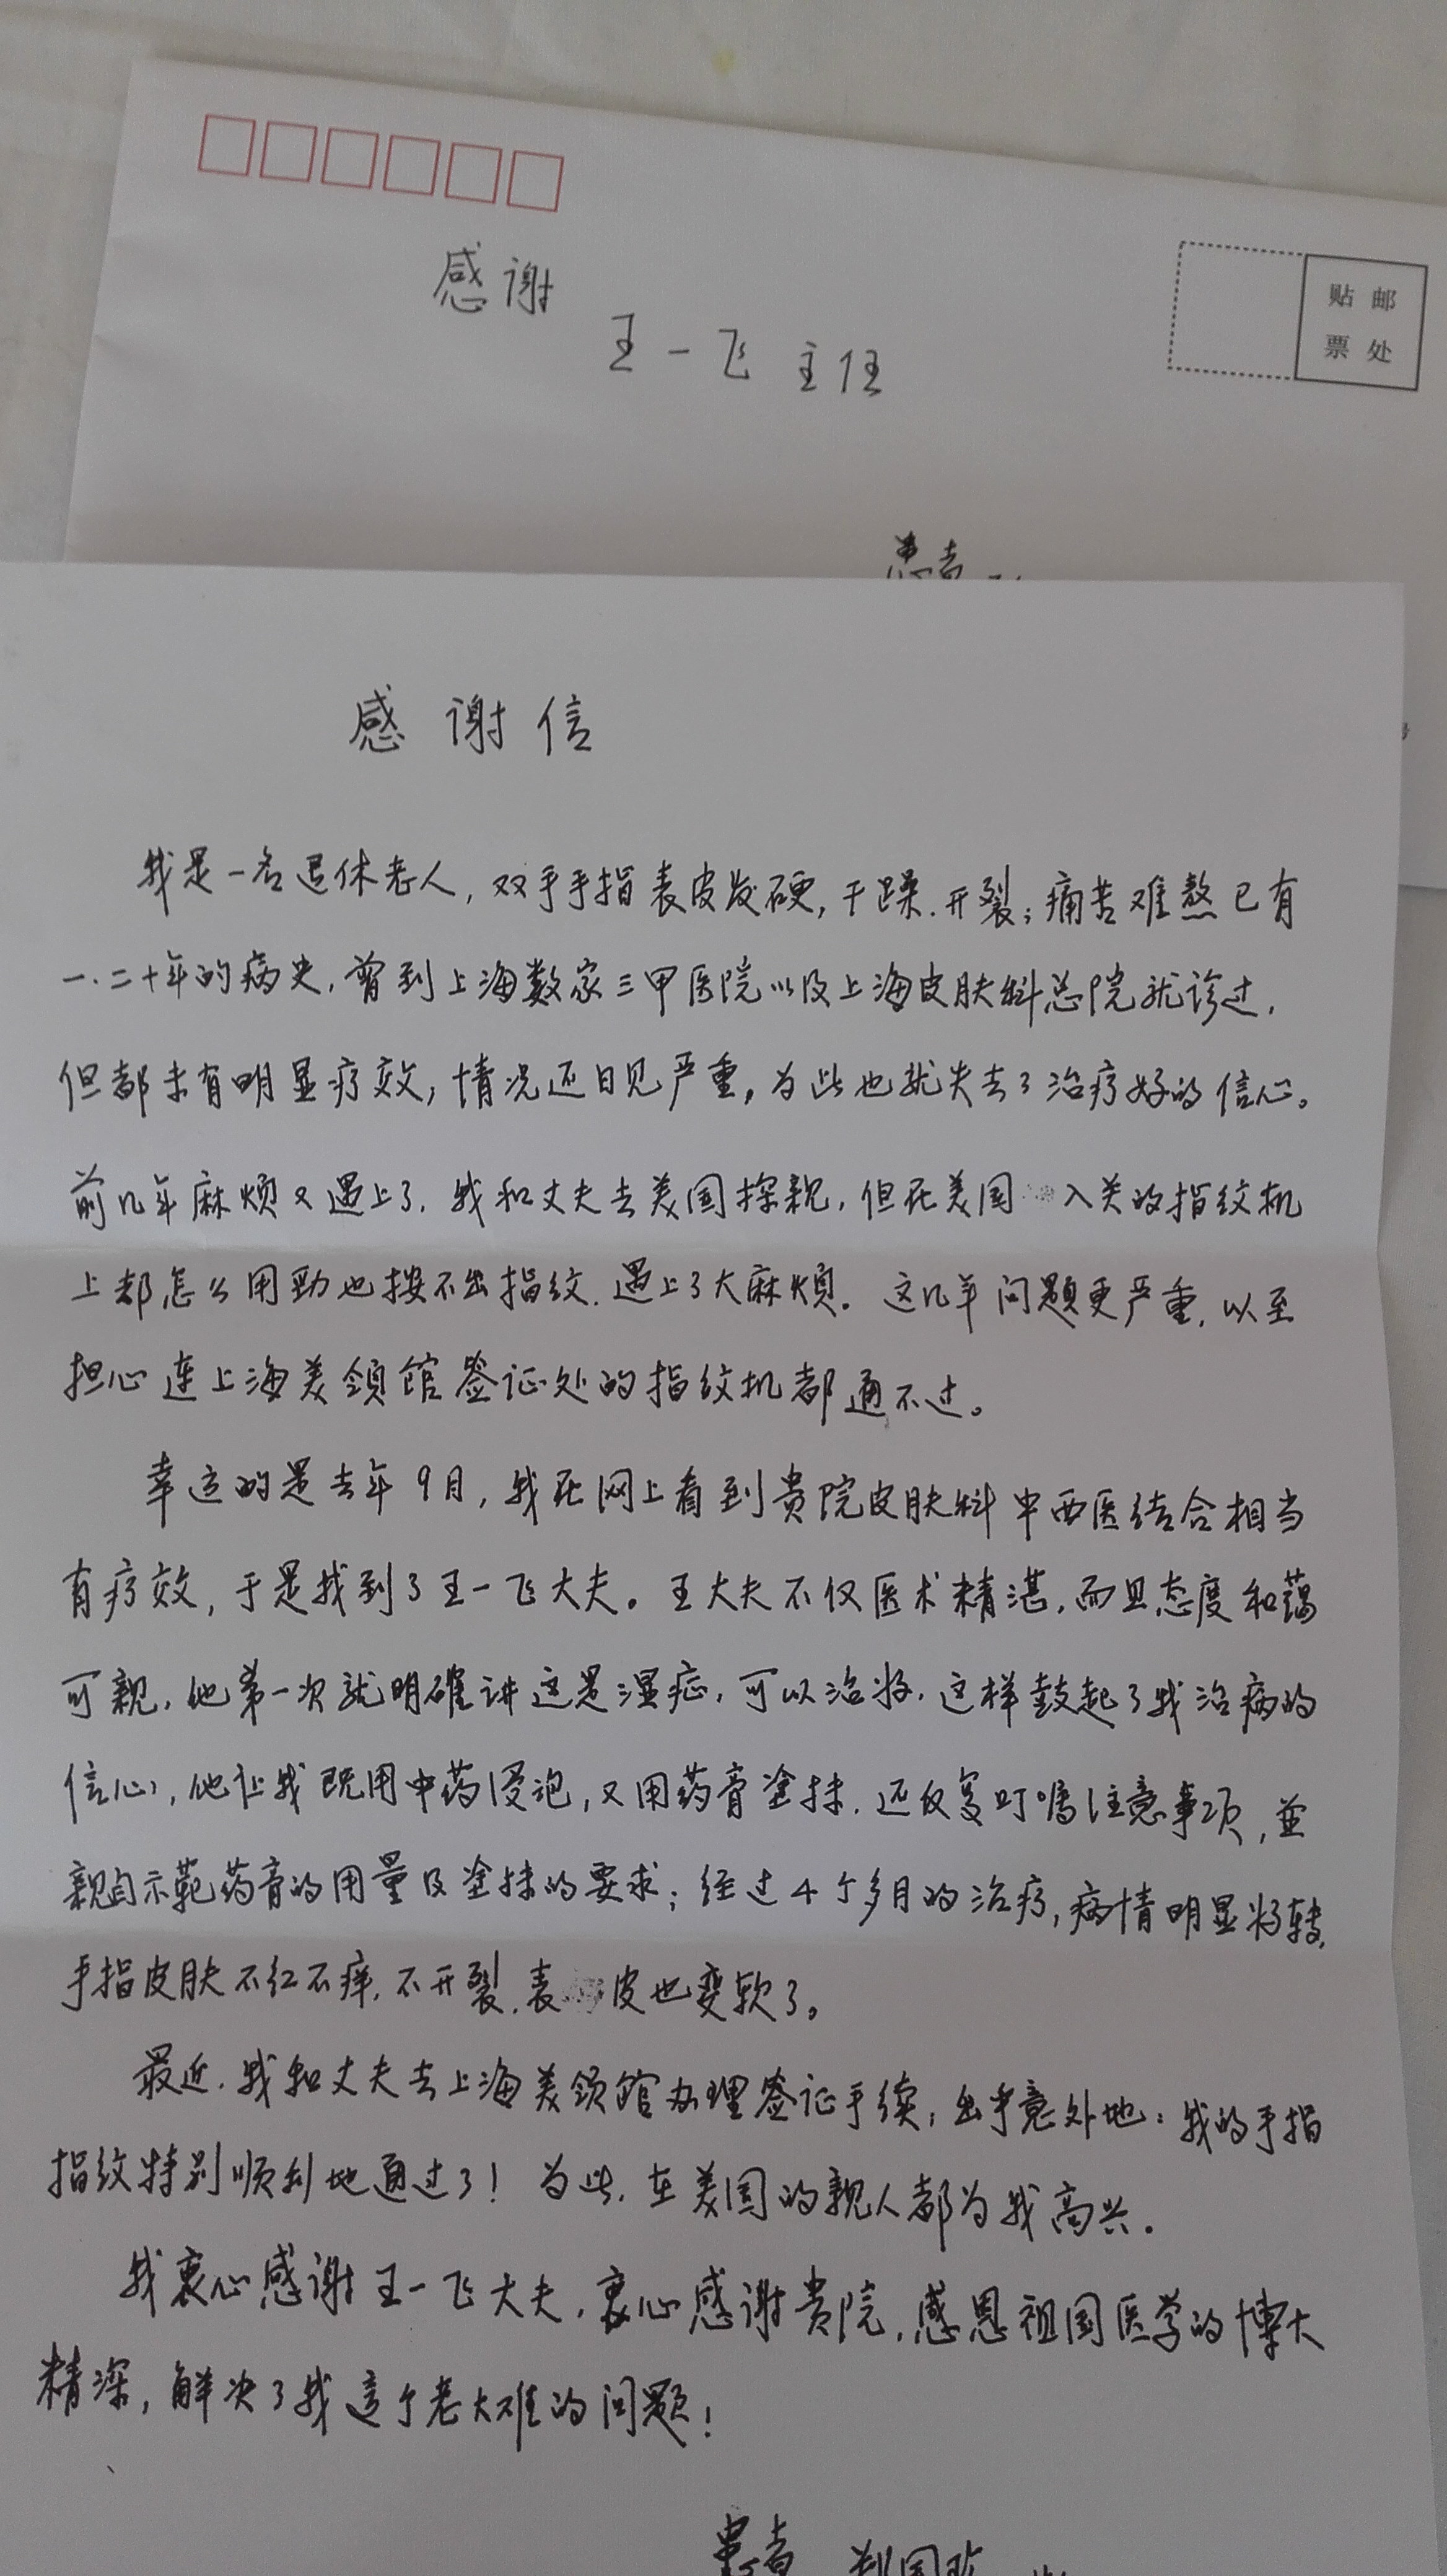 感谢
王一飞主任
贴邮
票处
患者
感谢信
我是一名退休老人,双手手指表皮发硬,干躁.开裂;痛苦难熬已有
一.二十年的病史,曾到上海数家三甲医院以及上海皮肤科总院就诊过,
但都未有明显疗效,情况还日见严重,为此也就失去了治疗好的信心。
前几年麻烦又遇上了.我和丈夫去美国探亲,但在美国入关的指纹机
上都怎么用劲也按不出指纹.遇上了大麻烦。这几年问题更严重,以至
担心连上海美领馆签证处的指纹机都通不过。
幸运的是去年9月,我在网上看到贵院皮肤科中西医结合相当
有疗效,于是找到了王一飞大夫。王大夫不仅医术精湛,而且态度和蔼
可亲,他第一次就明确讲这是湿症,可以治好.这样鼓起了我治病的
信心,他让我既用中药浸泡,又用药膏塗抹.还反复叮嘱注意事项,並
親自示範药膏的用量及塗抹的要求;经过4个多月的治疗,病情明显好转,
手指皮肤不红不痒,不开裂,表皮也变软了。
最近.我和丈夫去上海美领馆办理签证手续;出乎意外地:我的手指
指纹特别顺利地通过了!为此.在美国的親人都为我高兴.
我衷心感谢王一飞大夫.衷心感谢贵院.感恩祖国医学的博大
精深,解决了我这个老大难的问题!
患者 郑国珍